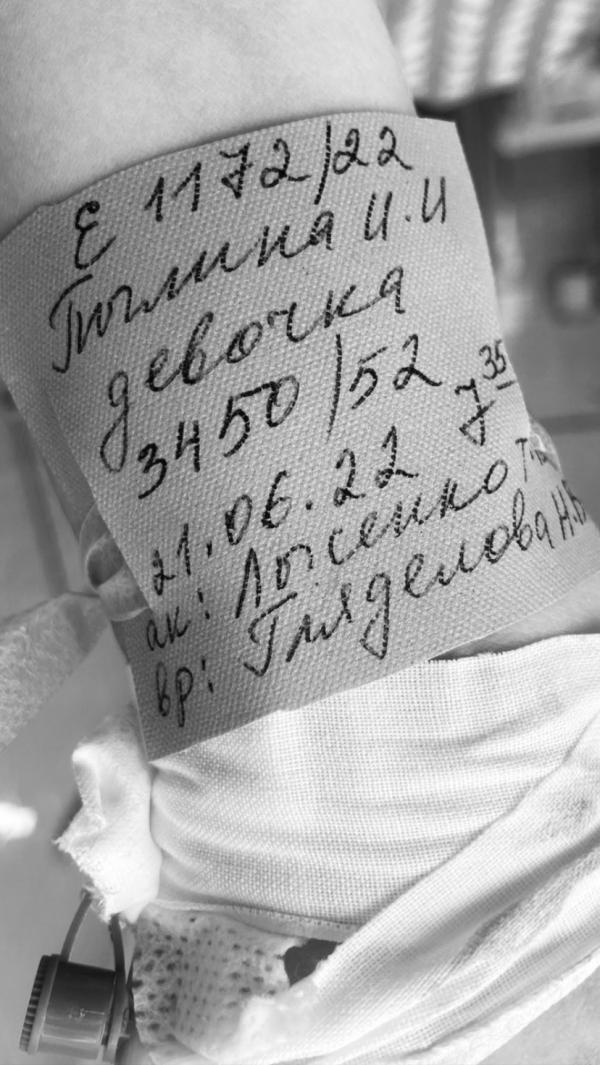 Е 1172/22
Тюлина И.И
девочка
3450/52 7 35
21.06.22
ак: Лысенко
вр: Гляделова Н.В